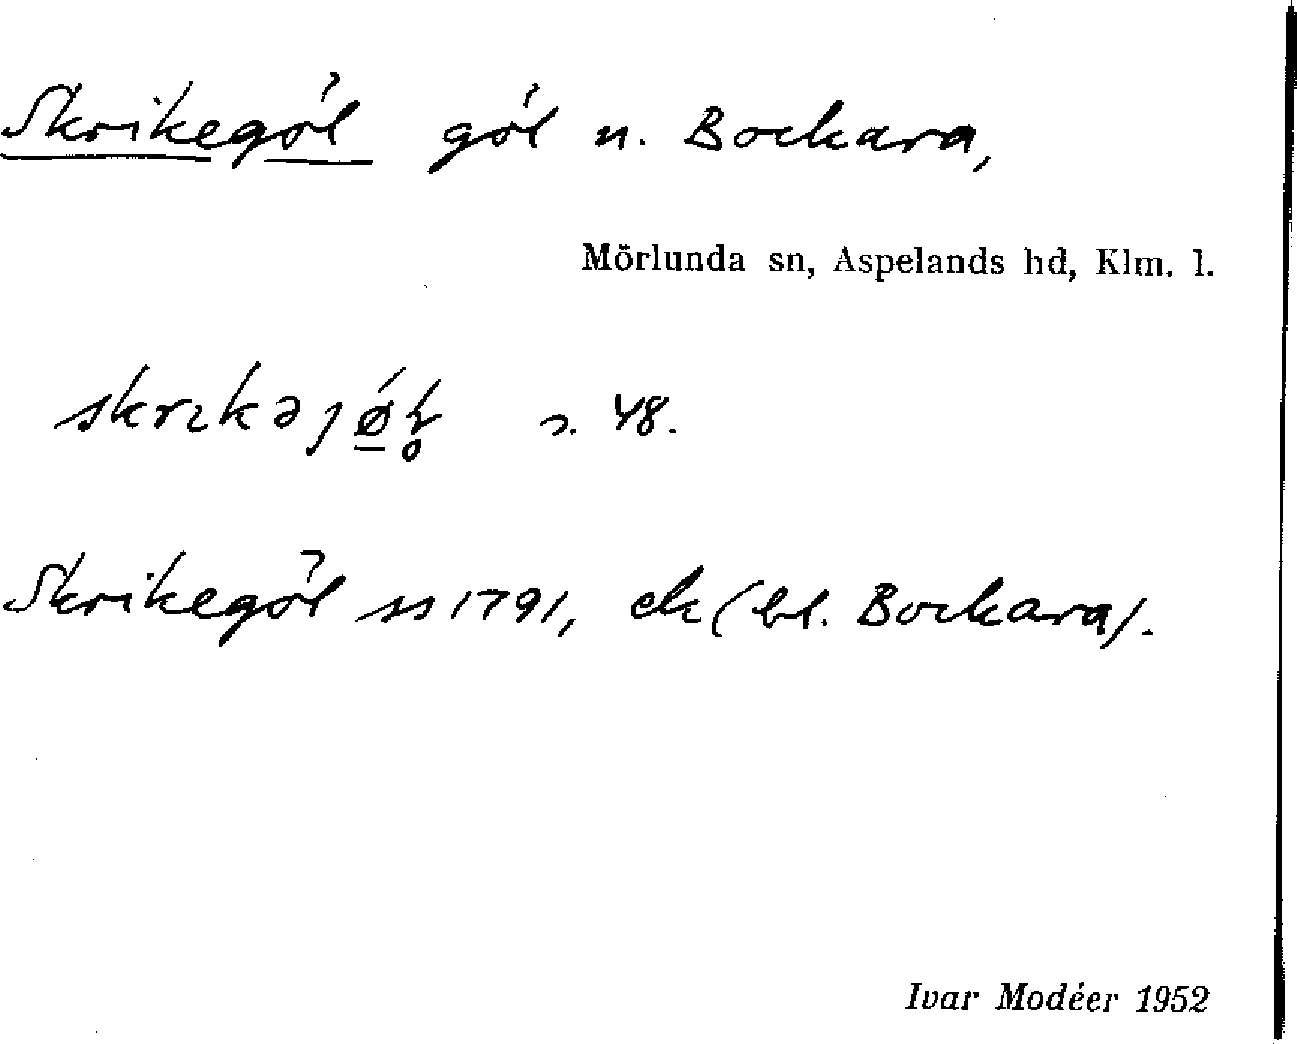 Skrikegöl göl n. Bockara,
Mörlunda sn, Aspelands hd, Klm. l.
skrıkəȷǿ̠ł̥ s. 48.
Skrikegöl ss 1791, ek (bl. Bockara).
Ivar Modéer 1952